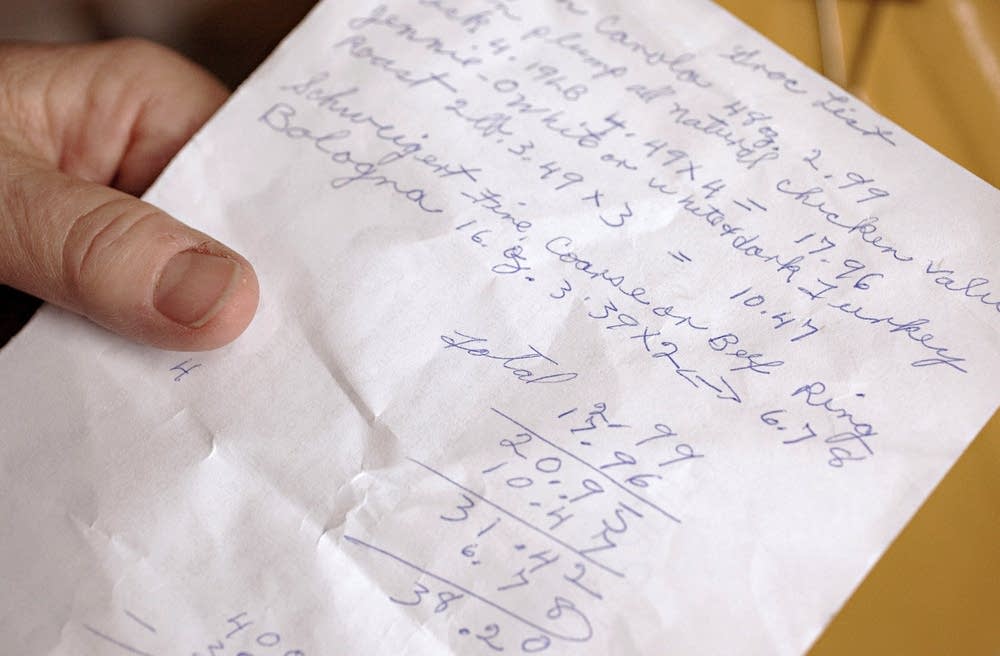 Groc List
n Canola 48 oz. 2.99
n plump all natural chicken value
ack 4.19LB 4.49x4= 17.96
Jennie-O White or white & dark Turkey
Roast 2lb. 3.49 x 3 = 10.47
Schweigert Fine, Coarse or Beef Ring
Bologna 16. oz. 3.39x2 <=> 6.78
4
Total
2.99
17.96
20.95
10.47
31.42
6.78
38.20
1
400